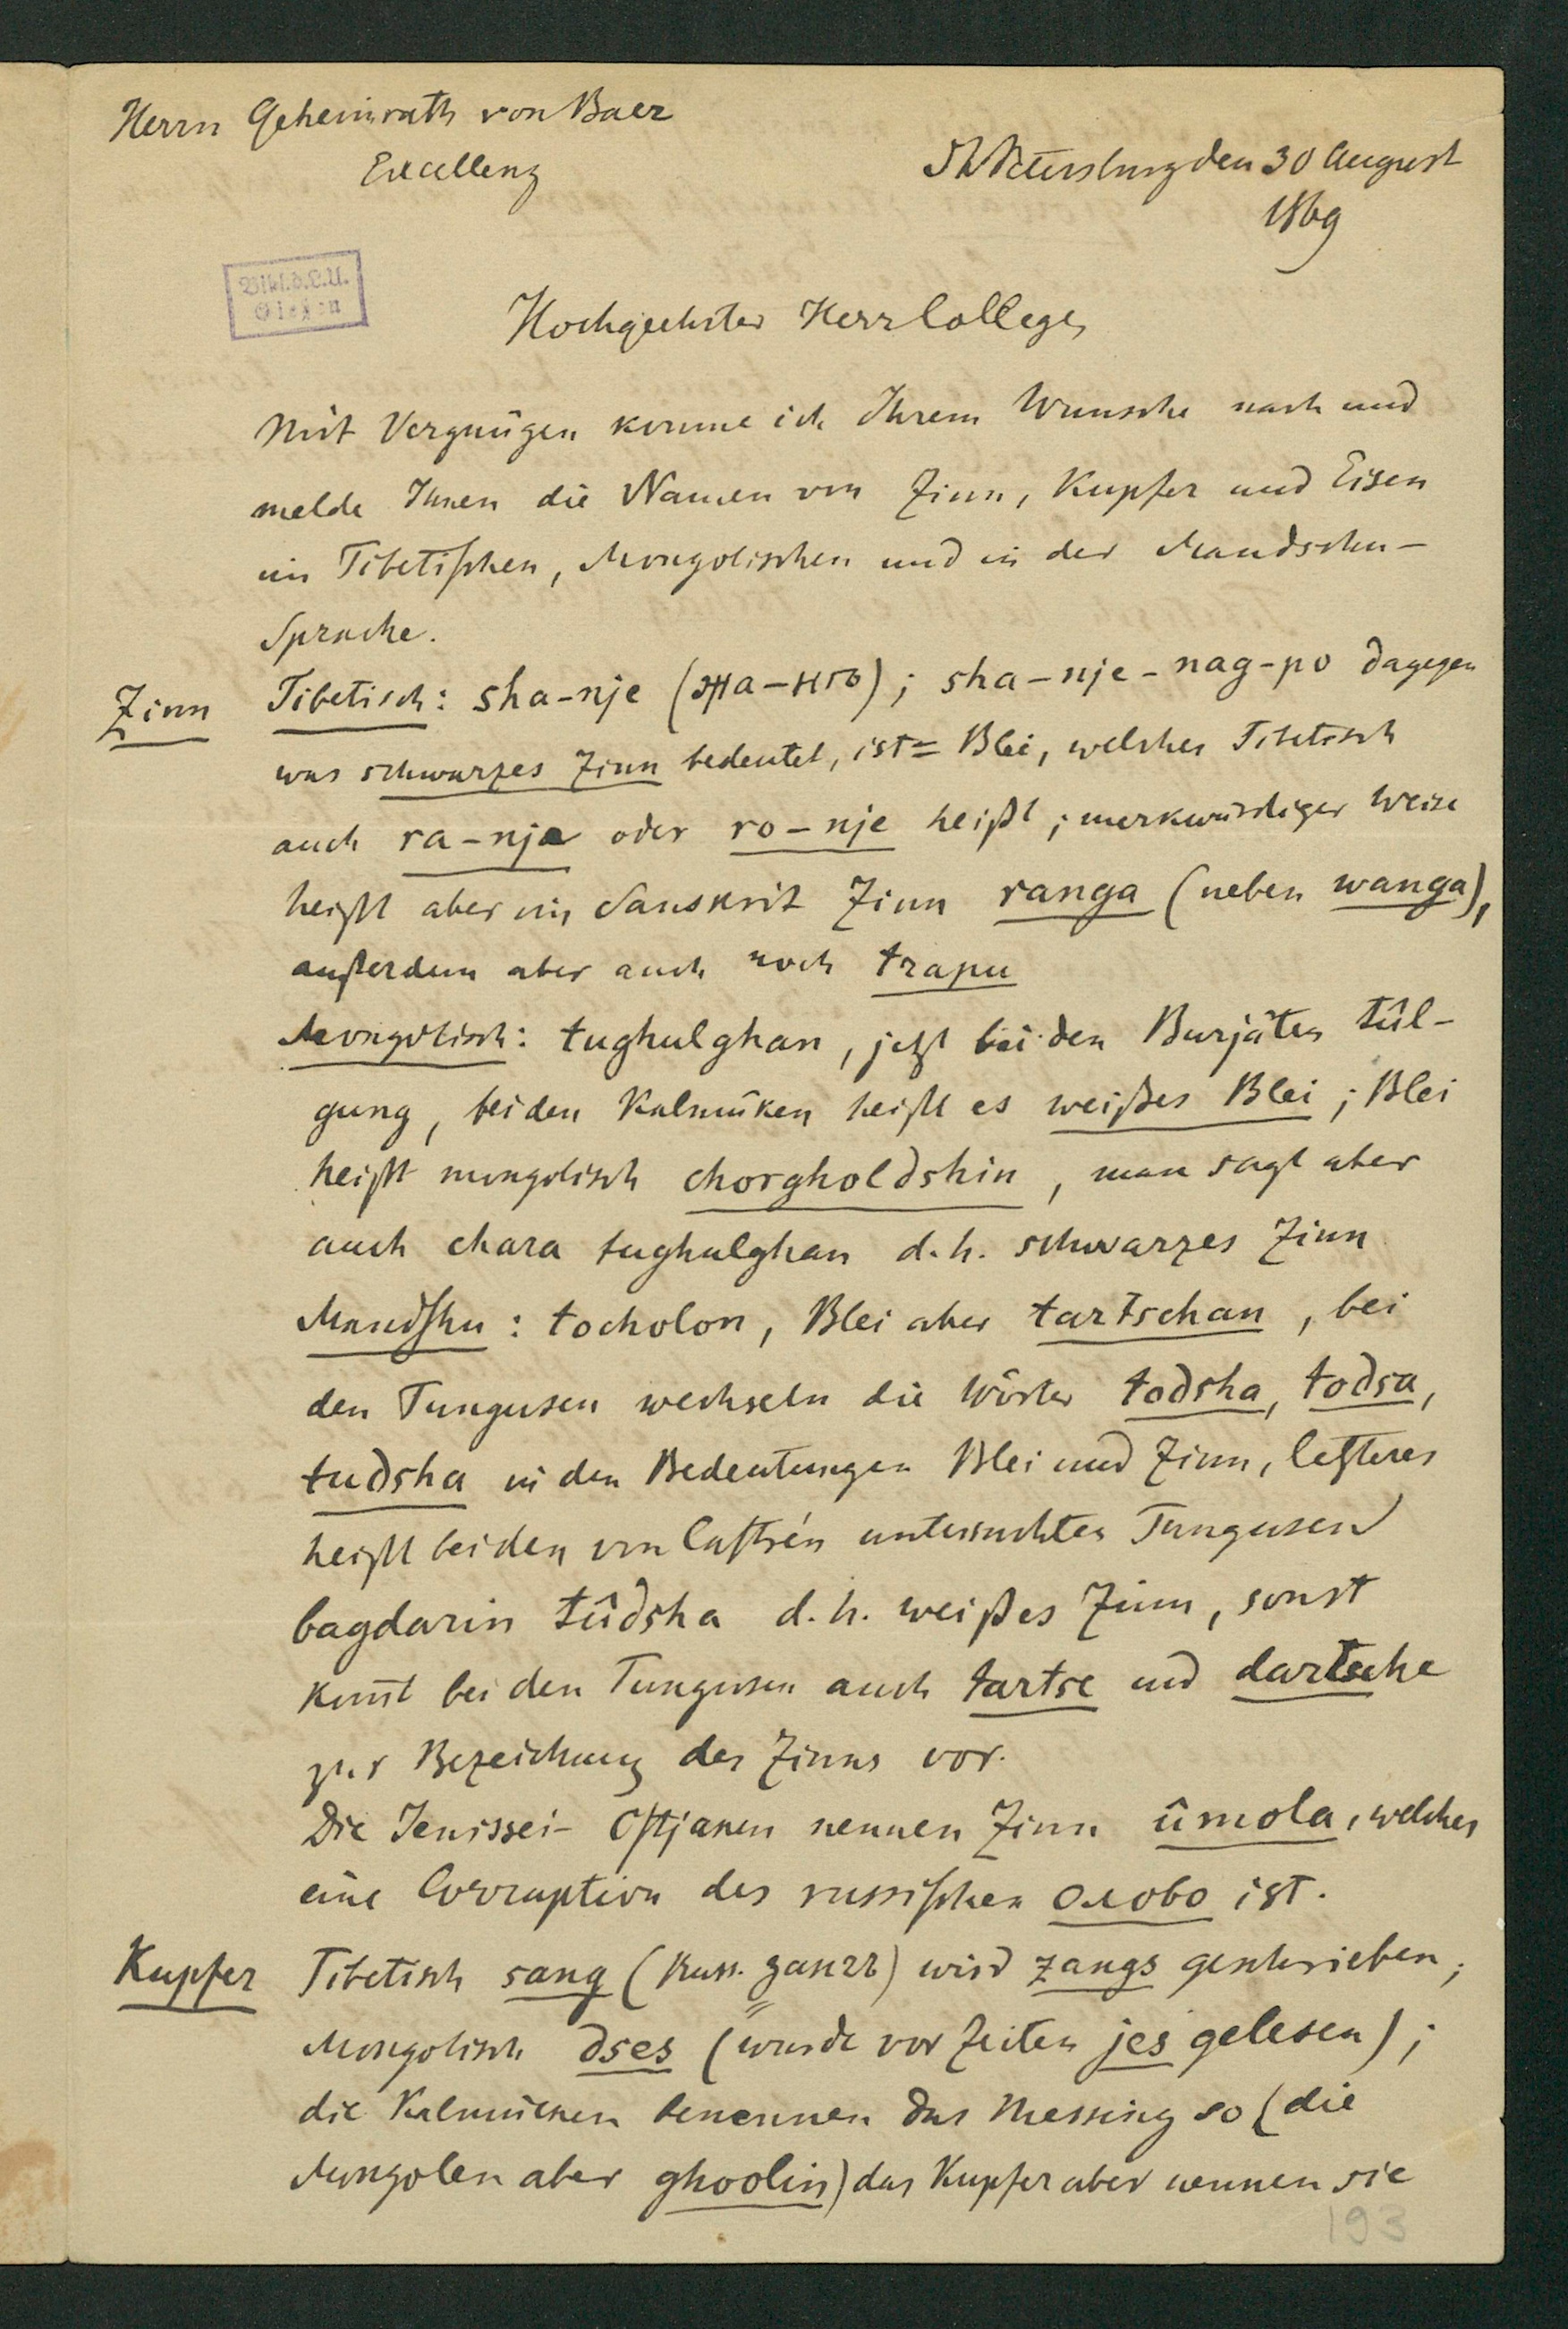 Herrn Geheimrath von Baer
Excellenz
St Petersburg den 30 August
1869
Bibl. d. L. U.
Gießen
Hochgeehrter Herr College,
Mit Vergnügen komme ich Ihrem Wunsche nach und
melde Ihnen die Namen von Zinn, Kupfer und Eisen
im Tibetischen, Mongolischen und in der Mandschu-
Sprache.
Zinn Tibetisch: sha-nje (жа-нѣ); sha-nje-nag-po dagegen
was schwarzes Zinn bedeutet, ist = Blei, welches Tibetisch
auch ra-nje oder ro-nje heißt; merkwürdiger Weise
heißt aber im Sanskrit Zinn ranga (neben wanga),
außerdem aber auch noch trapu
Mongolisch: tughulghan, jetzt bei den Burjäten tûl-
gung, bei den Kalmüken heißt es weißes Blei; Blei
heißt mongolisch chorgholdshin, man sagt aber
auch chara tughulghan d. h. schwarzes Zinn
Mandshu: tocholon, Blei aber tartschan, bei
den Tungusen wechseln die Wörter todsha, todsa,
tudsha in den Bedeutungen Blei und Zinn, letzteres
heißt bei den von Castrén untersuchten Tungusen
bagdarin tûdsha d. h. weißes Zinn, sonst
kommt bei den Tungusen auch tartse und dartsche
zur Bezeichnung des Zinns vor.
Die Jenissei-Ostjaken nennen Zinn ûmola, welches
eine Corruption des russischen олово ist.
Kupfer Tibetisch sang (Russ. зангъ) wird zangs geschrieben;
Mongolisch dses (wurde vor Zeiten jes gelesen);
die Kalmüken benennen das Messing so (die
Mongolen aber ghoolin) das Kupfer aber nennen sie
193